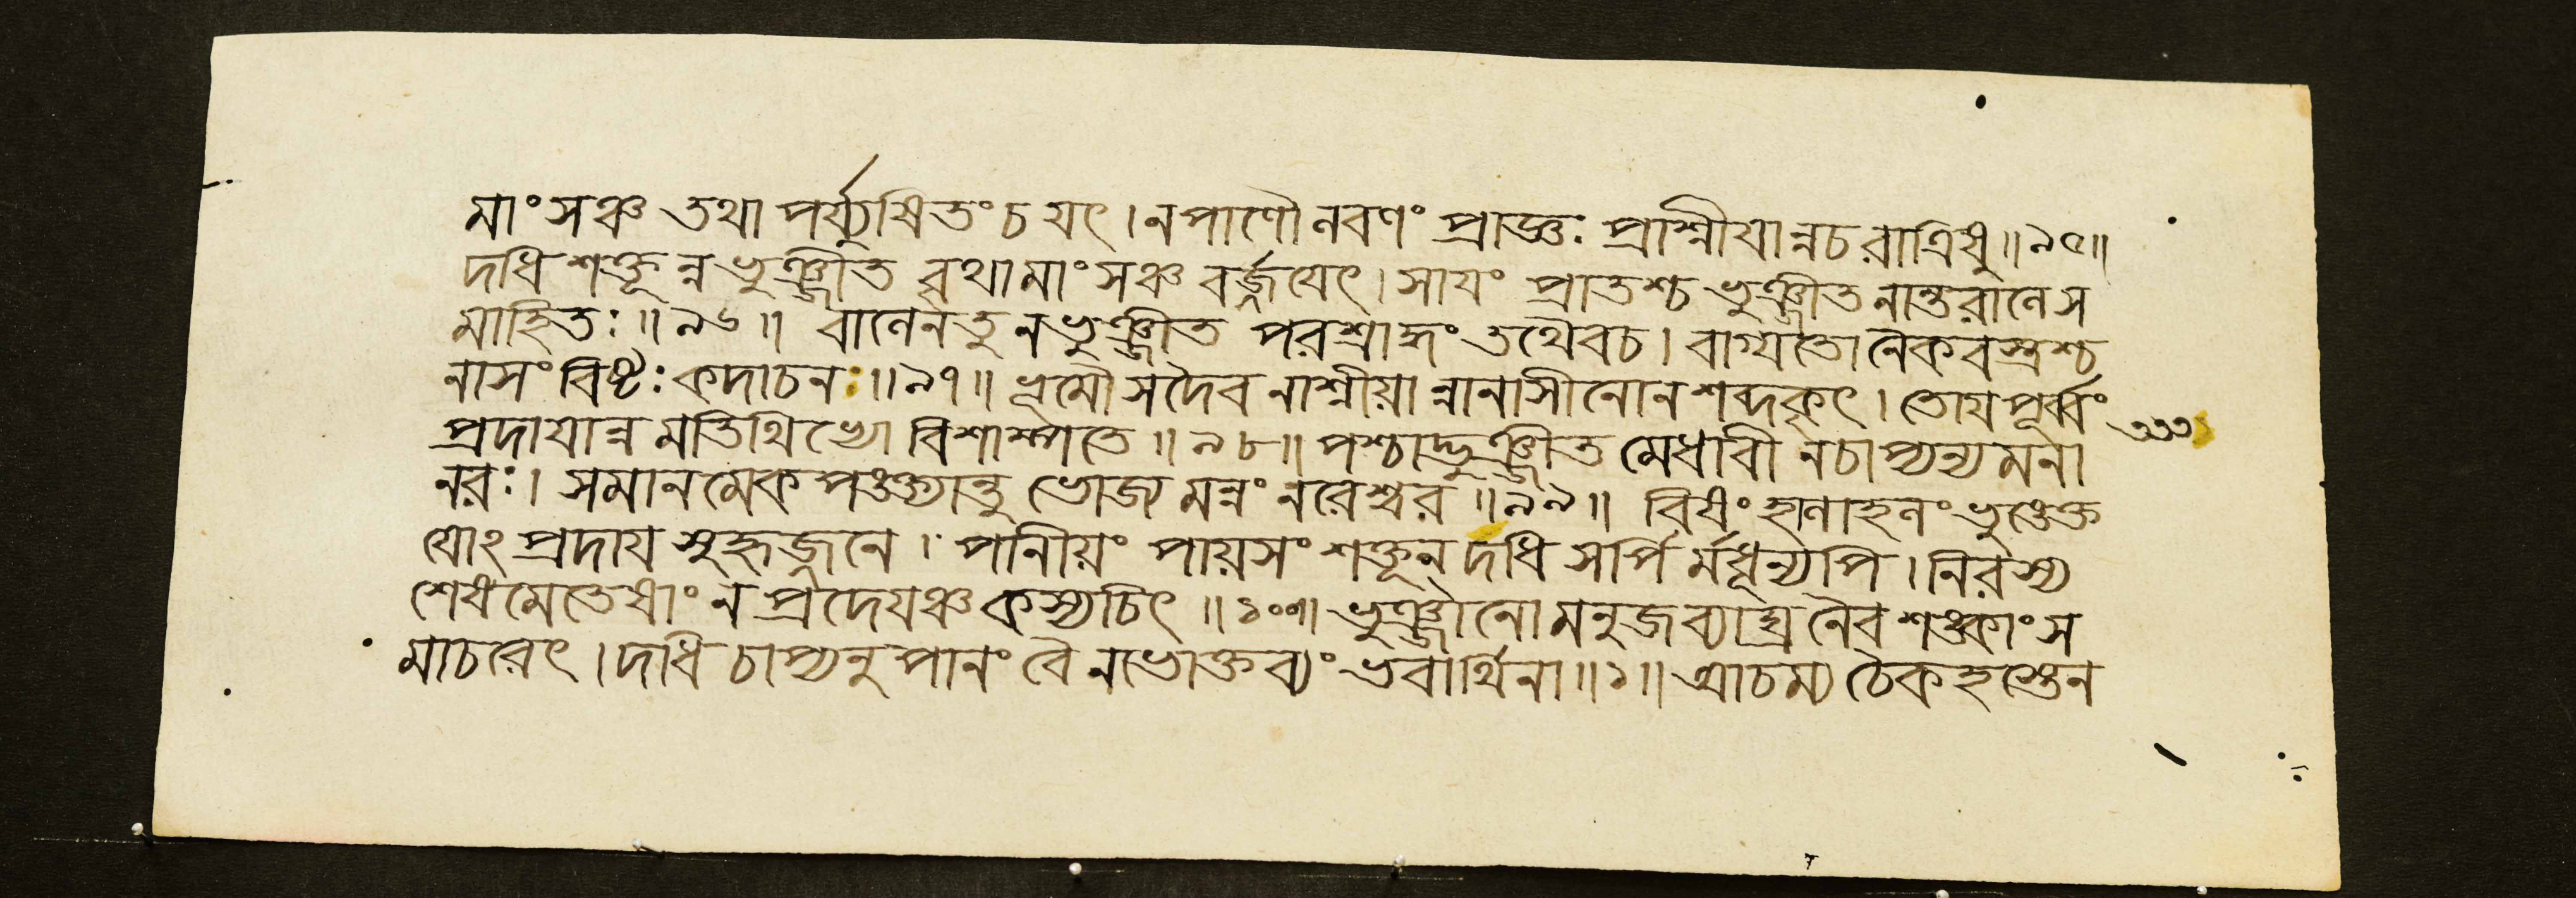 মাংসঞ্চ তথা পর্য্যুষিতং চ যৎ । ন পাণৌ লবণং প্রাজ্ঞঃ প্রাশ্নীয়ান্নচ রাত্রিষু ॥ ৯৫ ॥
দধি শক্তূন্ন ভুঞ্জীত বৃথামাংসঞ্চ বর্জ্জয়েৎ । সাযং প্রাতশ্চ ভুঞ্জীত নান্তরালে স
মাহিতঃ ॥ ৯৬ ॥ বালেন তু ন ভুঞ্জীত পরশ্রাদ্ধং তথৈবচ । বাগ্যতো নৈকবস্ত্রশ্চ
নাসংবিষ্টঃ কদাচনঃ ॥ ৯৭ ॥ ভূমৌ সদৈব নাশ্নীয়ান্নানাসীনো ন শব্দকৃৎ । তোযপূর্ব্বং
প্রদাযান্নমতিথিভ্যো বিশাম্পতে ॥ ৯৮ ॥ পশ্চাদ্ভুঞ্জীত মেধাবী নচাপ্যন্যমনা
নরঃ । সমানমেকপঙ্ক্ত্যান্তু ভোজ্যমন্নং নরেশ্বর ॥ ৯৯ ॥ বিষং হালাহলং ভুঙ্ক্তে
যোঽপ্রদায সুহৃজ্জনে । পানীয়ং পায়সং শক্তূন দধি সর্পির্মধূন্যপি । নিরস্য
শেষমেতেষাং ন প্রদেযঞ্চ কস্যচিৎ ॥ ১০০ ॥ ভুঞ্জানো মনুজব্যাঘ্র নৈব শঙ্কাং স
মাচরেৎ । দধি চাপ্যনুপানং বৈ ন ভোক্তব্যং ভবার্থিনা ॥ ১ ॥ আচম্য চৈকহস্তেন